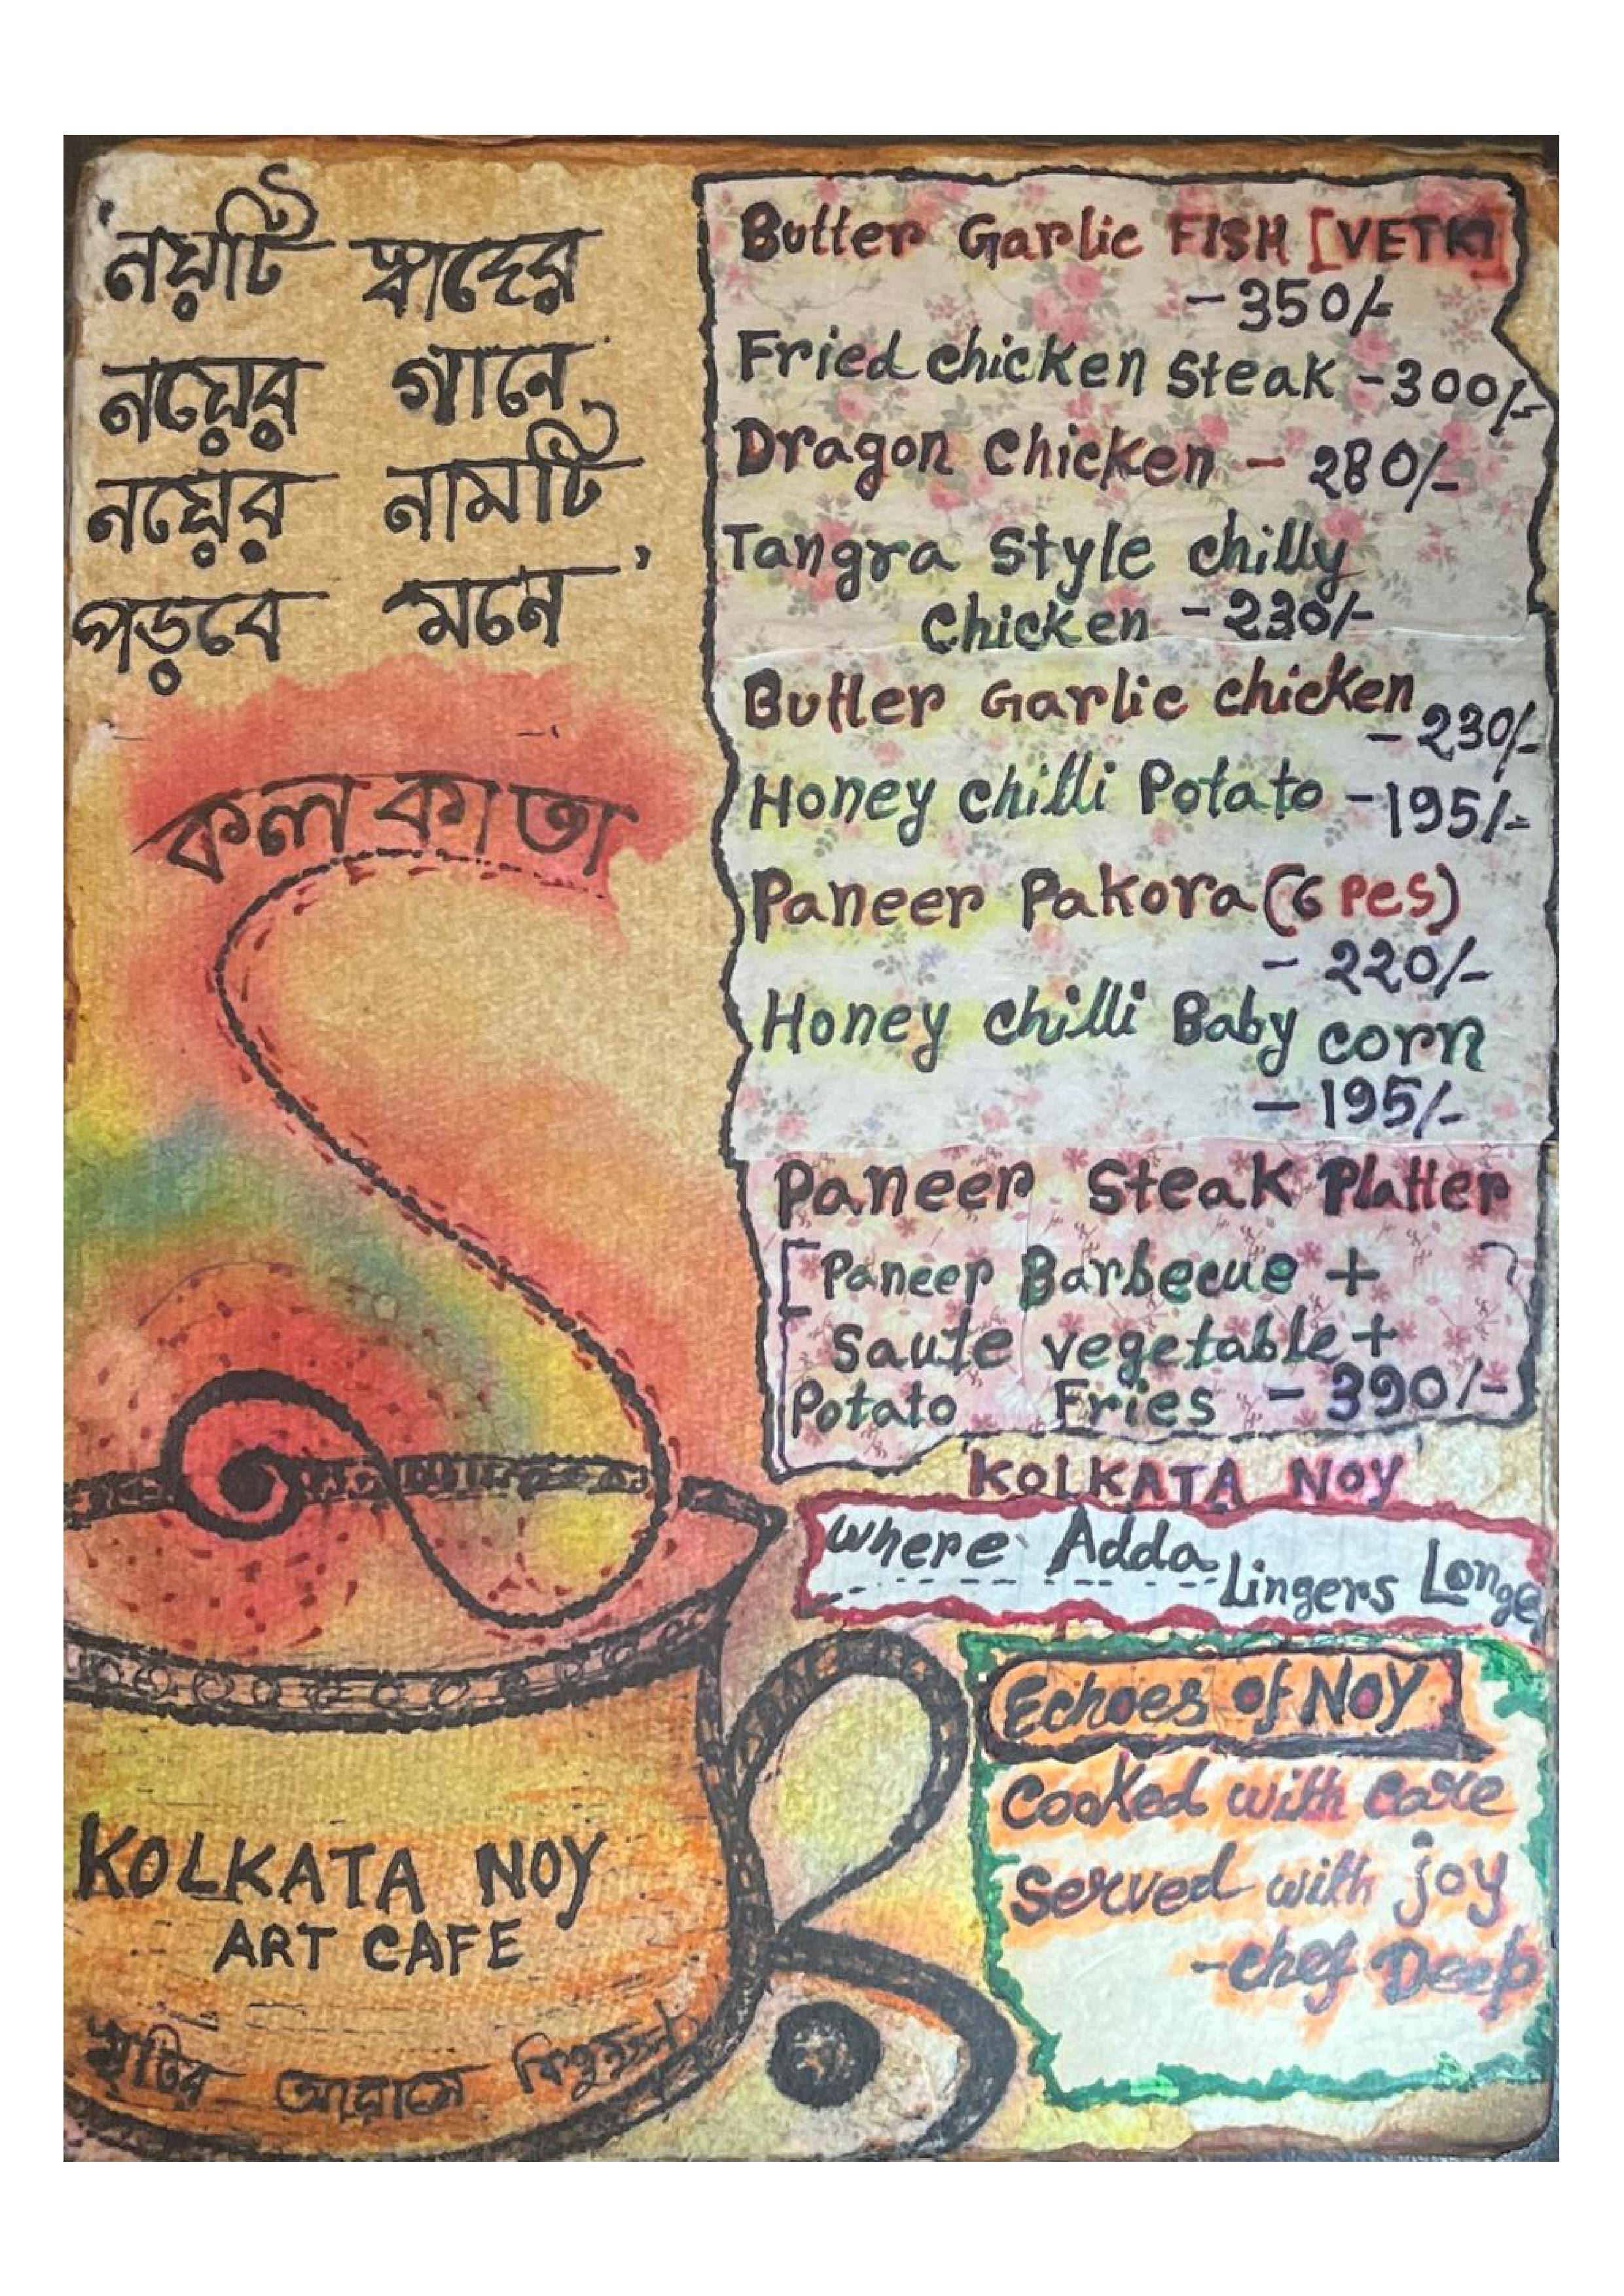 'নয়টি স্বাদের
নয়ের গানে
নয়ের নামটি
পড়বে মনে'
কলকাতা
KOLKATA NOY
ART CAFE
মাটির
Butter Garlic FISH [VETKI]
- 350/-
Fried chicken steak - 300/-
Dragon chicken - 280/-
Tangra Style chilly
chicken - 230/-
Butter Garlic chicken
- 230/-
Honey chilli Potato - 195/-
Paneer Pakora (6 Pcs)
- 220/-
Honey chilli Baby corn
- 195/-
Paneer Steak Platter
[Paneer Barbecue +
Saute vegetable +
Potato Fries - 390/-]
KOLKATA NOY
where Adda Lingers Longe
Echoes of NOY
Cooked with care
Served with joy
- chef Deep